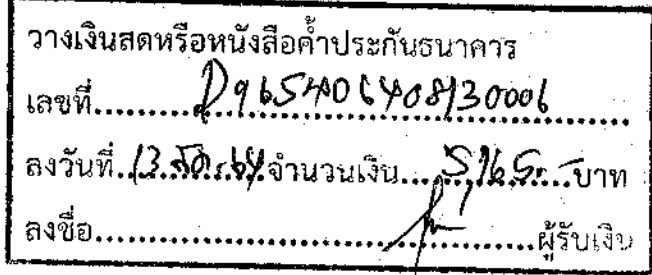 วางเงินสดหรือหนังสือค้ำประกันธนาคาร
เลขที่.........D965406408130006
ลงวันที่.13.ส.ค.64.จำนวนเงิน....5,165.-บาท
ลงชื่อ...........................................ผู้รับเงิน